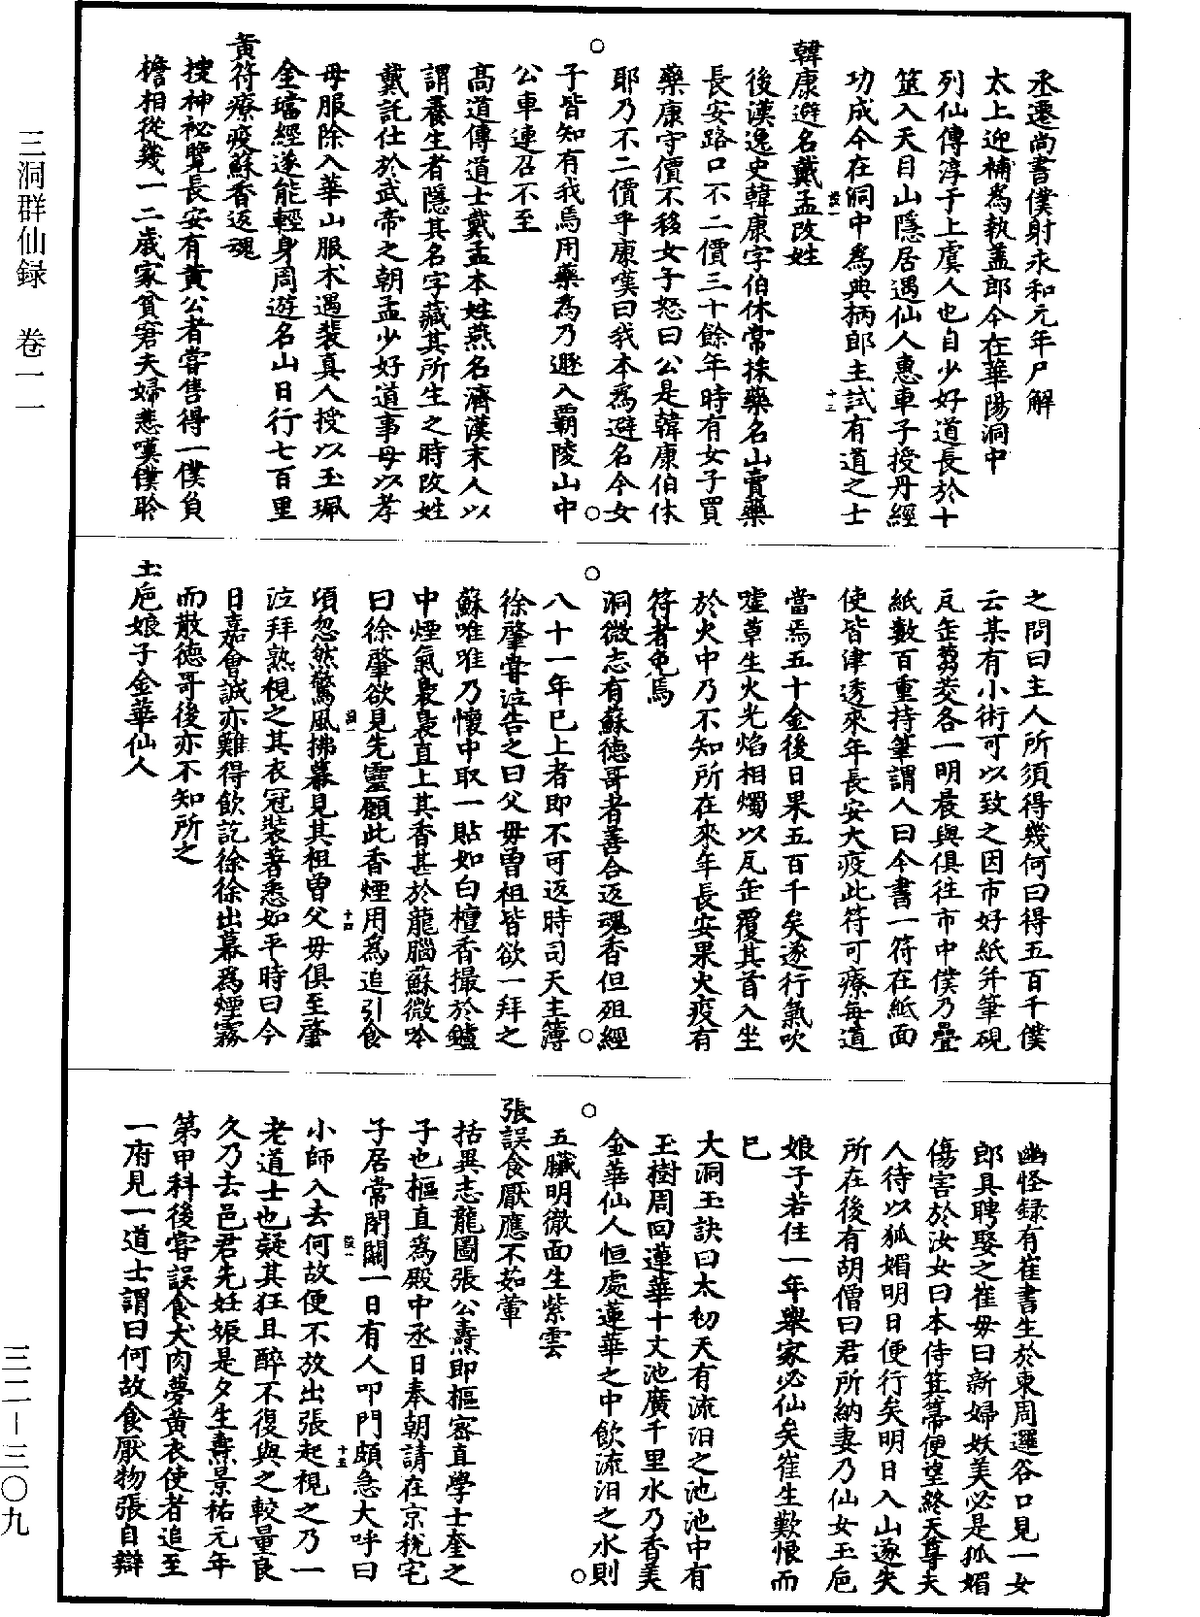 丞遷尚書僕射永和元年尸解
太上迎補爲執蓋郎今在華陽洞中
列仙傳淳于上虞人也自少好道長於十
筮入天目山隱居遇仙人惠車子授丹經
功成今在洞中爲典柄郎主試有道之士
韓康避名戴孟改姓
後漢逸史韓康字伯休常採藥名山賣藥
長安路口不二價三十餘年時有女子買
藥康守價不移女子怒曰公是韓康伯休
耶乃不二價乎康嘆曰我本爲避名今女
子皆知有我焉用藥爲乃遯入覇陵山中
公車連召不至
高道傳道士戴孟本姓燕名濟漢末人以
謂養生者隱其名字藏其所生之時改姓
戴託仕於武帝之朝孟少好道事母以孝
母服除入華山服术遇裴真人授以玉珮
金璫經遂能輕身周遊名山日行七百里
黃符療疫蘇香返魂
搜神祕覽長安有黃公者嘗售得一僕負
檐相從幾一二歲家貧窘夫婦悲嘆僕聆
之問曰主人所須得幾何曰得五百千僕
云某有小術可以致之因市好紙并筆硯
瓦缶蒭茭各一明晨與俱往市中僕乃疊
紙數百重持筆謂人曰今書一符在紙面
使皆津透來年長安大疫此符可療每道
當焉五十金後日果五百千矣遂行氣吹
噓草生火光焰相燭以瓦缶覆其首入坐
於火中乃不知所在來年長安果火疫有
符者免焉
洞微志有蘇德哥者善合返魂香但殂經
八十一年已上者即不可返時司天主簿
徐肇嘗泣告之曰父母曾祖皆欲一拜之
蘇唯唯乃懷中取一貼如白檀香撮於鑪
中煙氣裊裊直上其香甚於龍腦蘇微吟
曰徐肇欲見先靈願此香煙用爲追引食
頃忽然驚風拂幕見其祖曾父母俱至肇
泣拜熟視之其衣冠裝著悉如平時曰今
日嘉會誠亦難得飲訖徐徐出幕爲煙霧
而散德哥後亦不知所之
玉巵娘子金華仙人
幽怪録有崔書生於東周邏谷口見一女
郎具聘娶之崔母曰新婦妖美必是狐媚
傷害於汝女曰本侍箕箒便望終天尊夫
人待以狐媚明日便行矣明日入山逐失
所在後有胡僧曰君所納妻乃仙女玉巵
娘子若住一年舉家必仙矣崔生歎恨而
已
大洞玉訣曰太初天有流汨之池池中有
玉樹周回蓮華十丈池廣千里水乃香美
金華仙人恒處蓮華之中飲流汨之水則
五臟明徹面生紫雲
張誤食厭應不茹葷
括異志龍圖張公燾即樞密直學士奎之
子也樞直爲殿中丞日奉朝請在京稅宅
子居常閉關一日有人叩門頗急大呼曰
小師入去何故便不放出張起視之乃一
老道士也疑其狂且醉不復與之較量良
久乃去邑君先妊娠是夕生燾景祐元年
第甲科後嘗誤食犬肉夢黃衣使者追至
一府見一道士謂曰何故食厭物張自辯
三洞群仙録　卷一一
三二－三〇九